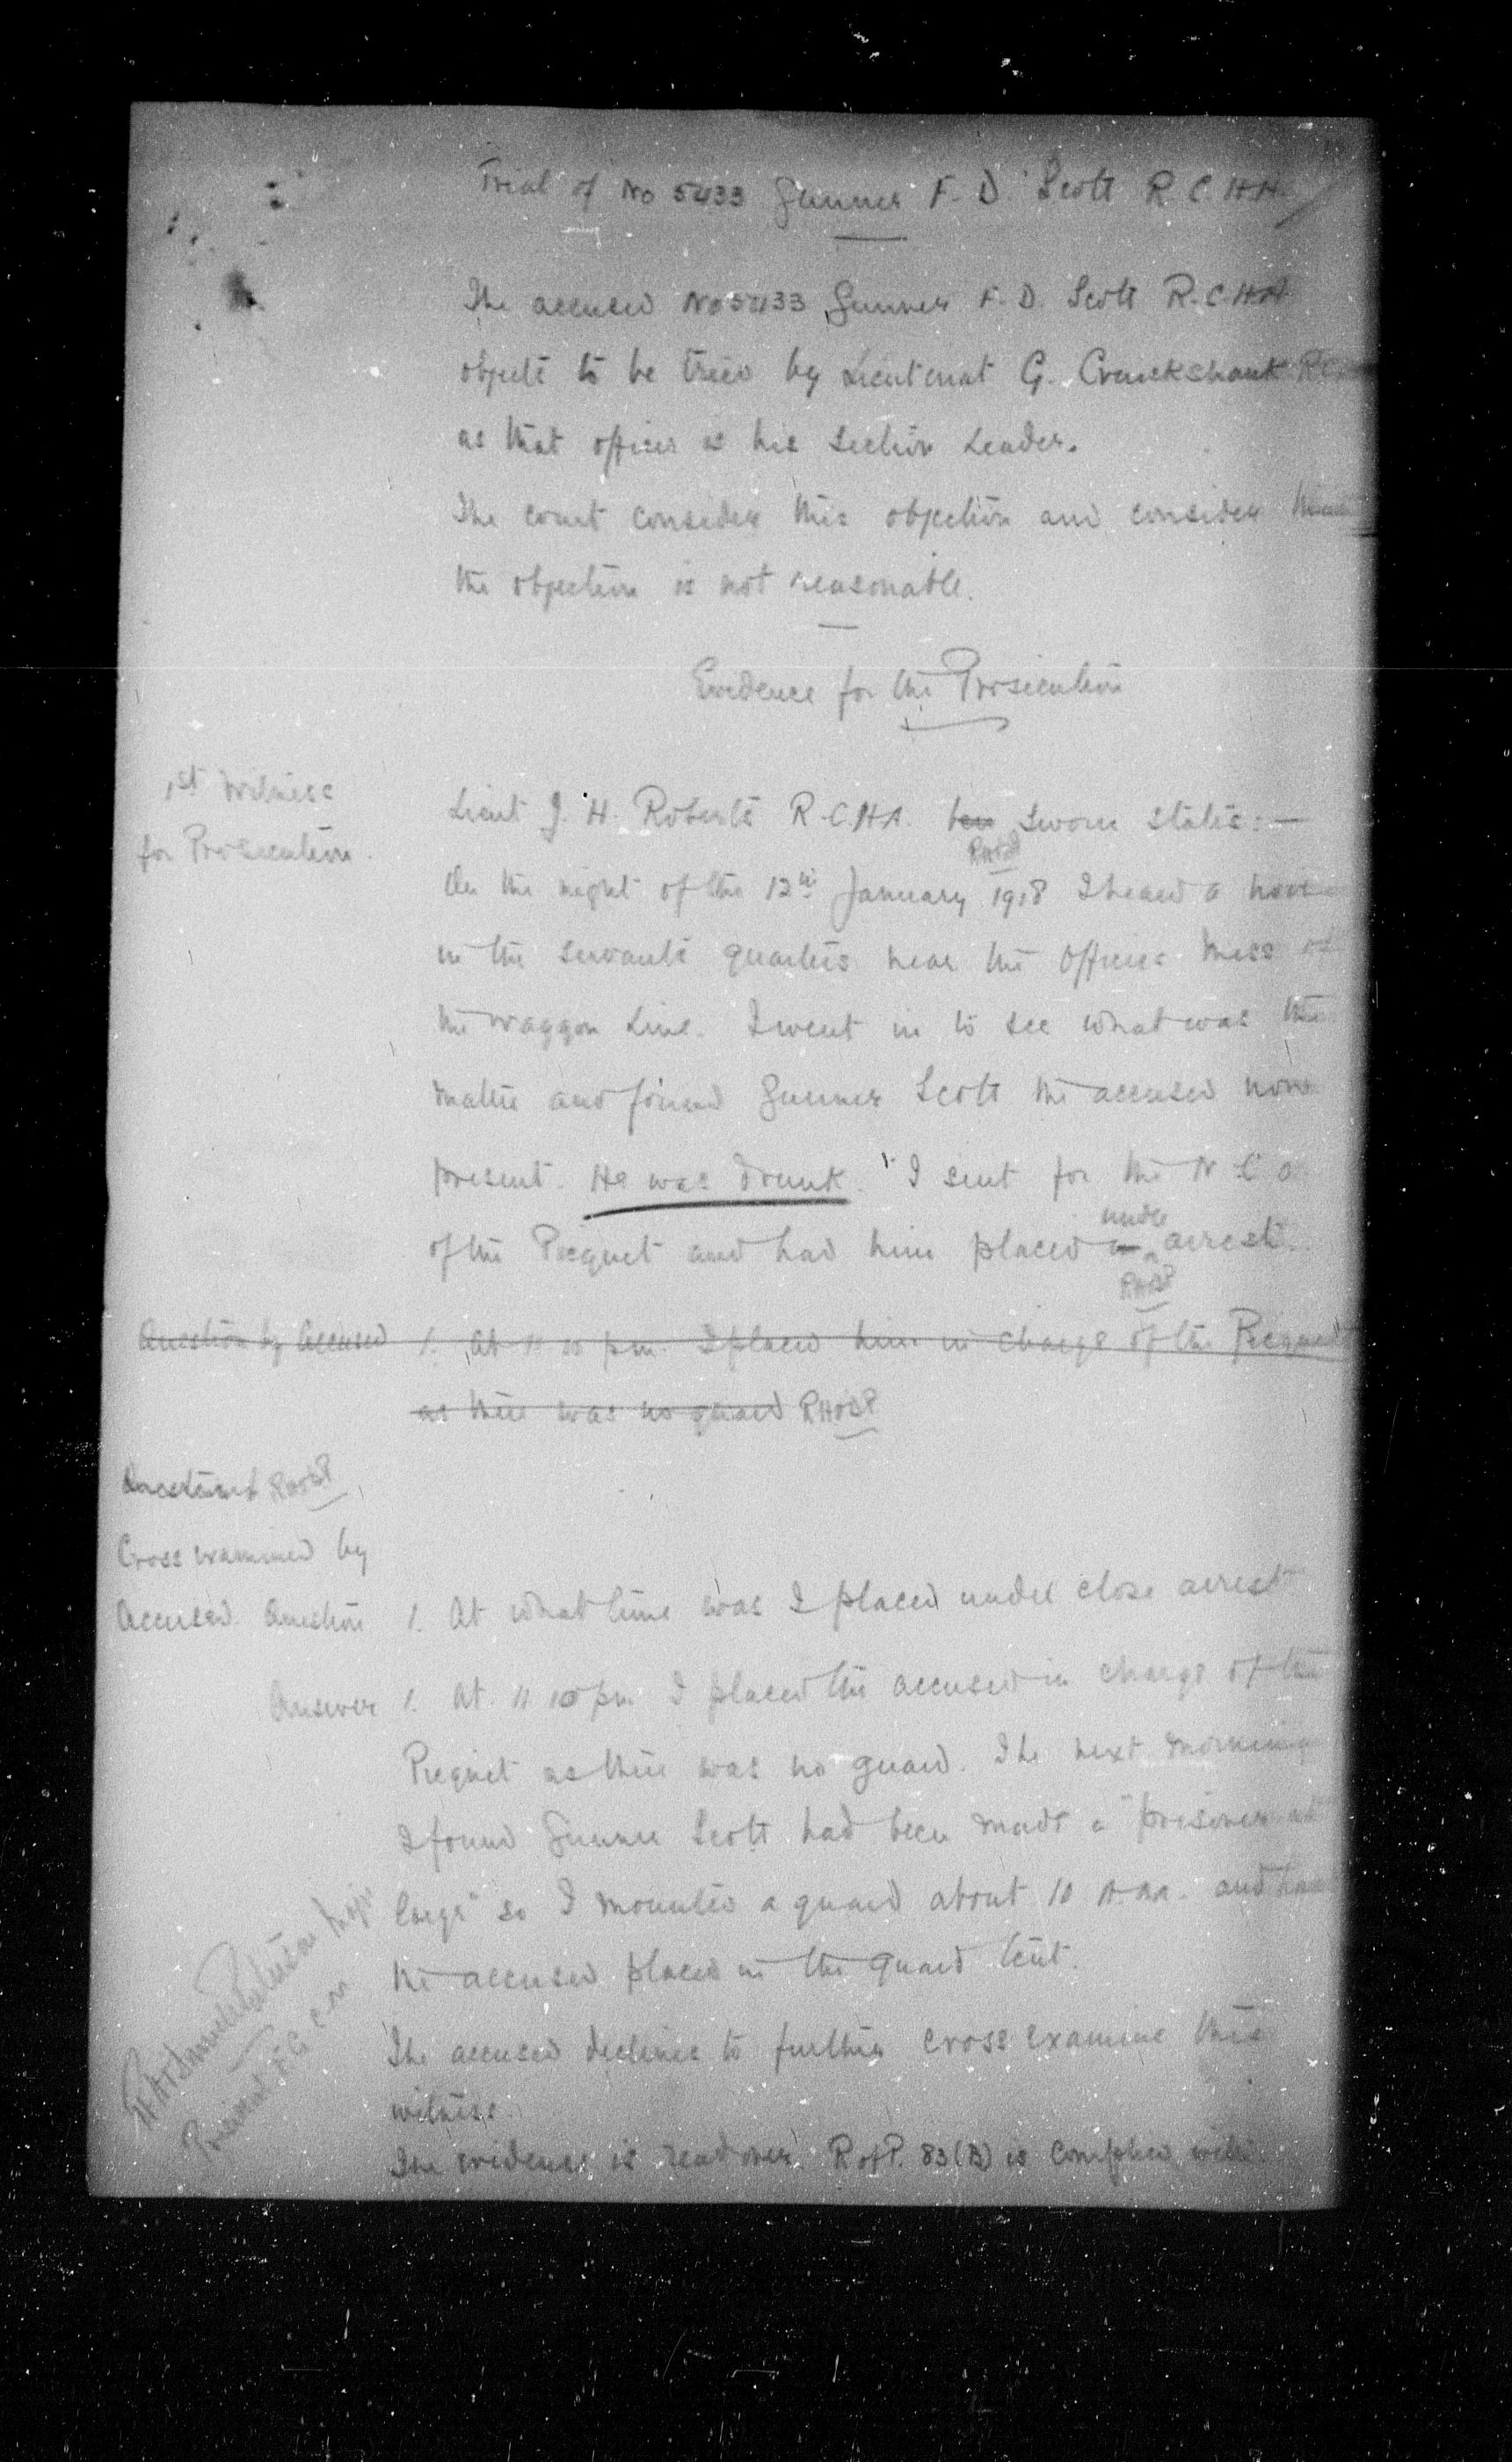 Trial of No 5433 Gunner F. D. Scott R.C.H.A.
The accused No 5433 Gunner F. D. Scott R.C.H.A.
objects to be tried by Lieutenat G. Cruickshank
as that officer is his Section Leader.
The court consider this objection and consider that
the objection is not reasonable.
Evidence for the Prosecution
1st Witness
for Prosecution.
Lieut J. H. Roberts R.C.H.A. sworn states:—
On the night of the 12th January 1918 I heard a noise
in the servants quarters near the Officers Mess of
the Waggon Line. I went in to see what was the
matter and found Gunner Scott the accused now
present. He was drunk. I sent for the N C O
of the Picquet and had him placed under arrest.
Question by Accused 1. At 11 10 pm. I placed him in charge of the Picquet
as there was no guard
Cross examined by
Accused. Question 1. At what time was I placed under close arrest
Answer 1. At 11 10 pm I placed the accused in charge of the
Picquet as there was no guard. The next morning
I found Gunner Scott had been made a "prisoner at
large" so I mounted a guard about 10 A.M. and had
the accused placed in the guard tent.
The accused declines to further cross examine this
witness.
The evidence is read over. R of P. 83(B) is complied with.
President F G C M